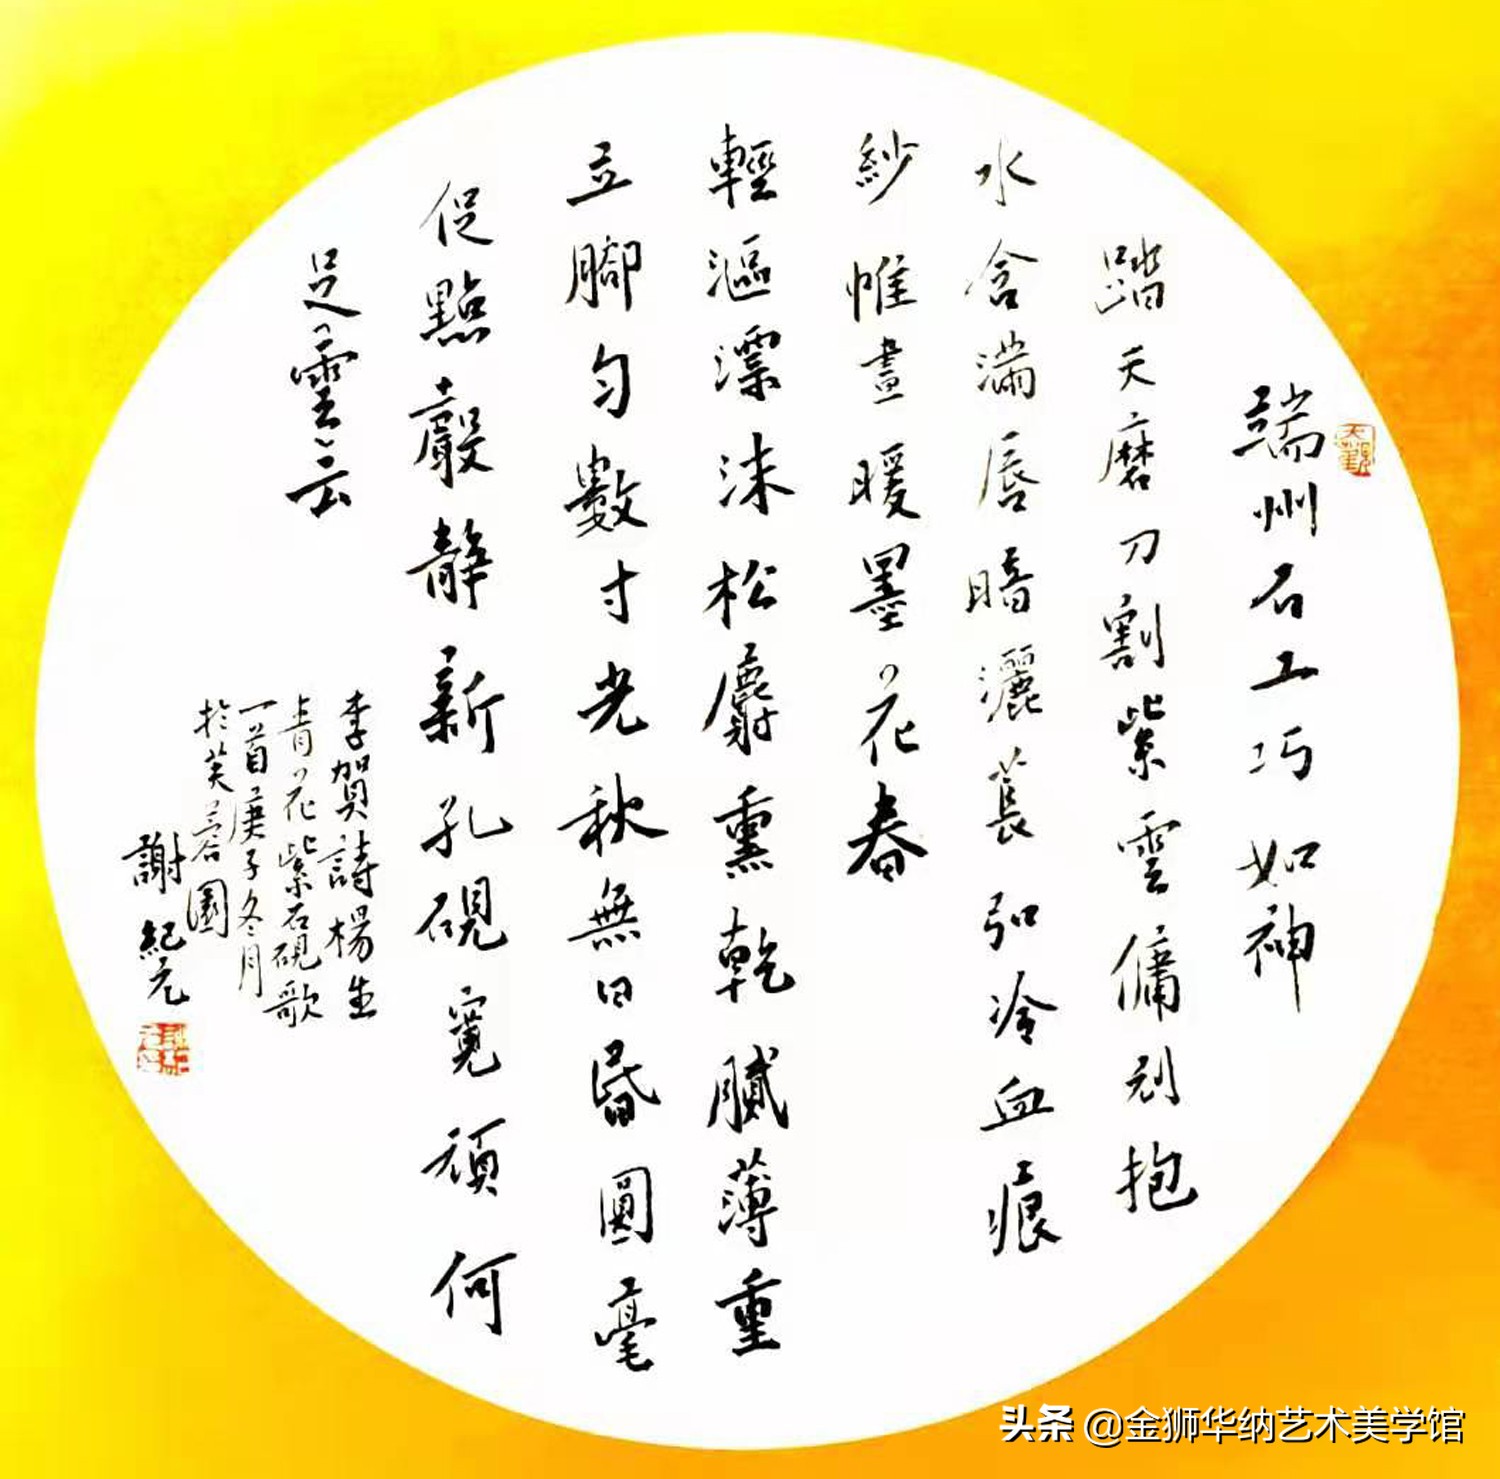 端州石工巧如神
踏天磨刀割紫雲傭刓抱
水含滿唇暗灑萇弘冷血痕
紗帷晝暖墨花春
輕漚漂沫松麝熏乾膩薄重
立腳勻數寸光秋無日昏圓毫
促點聲靜新孔硯寬頑何
足雲云
李賀詩楊生
青花紫石硯歌
一首庚子冬月
於芙蓉園
謝紀元
头条 @金狮华纳艺术美学馆